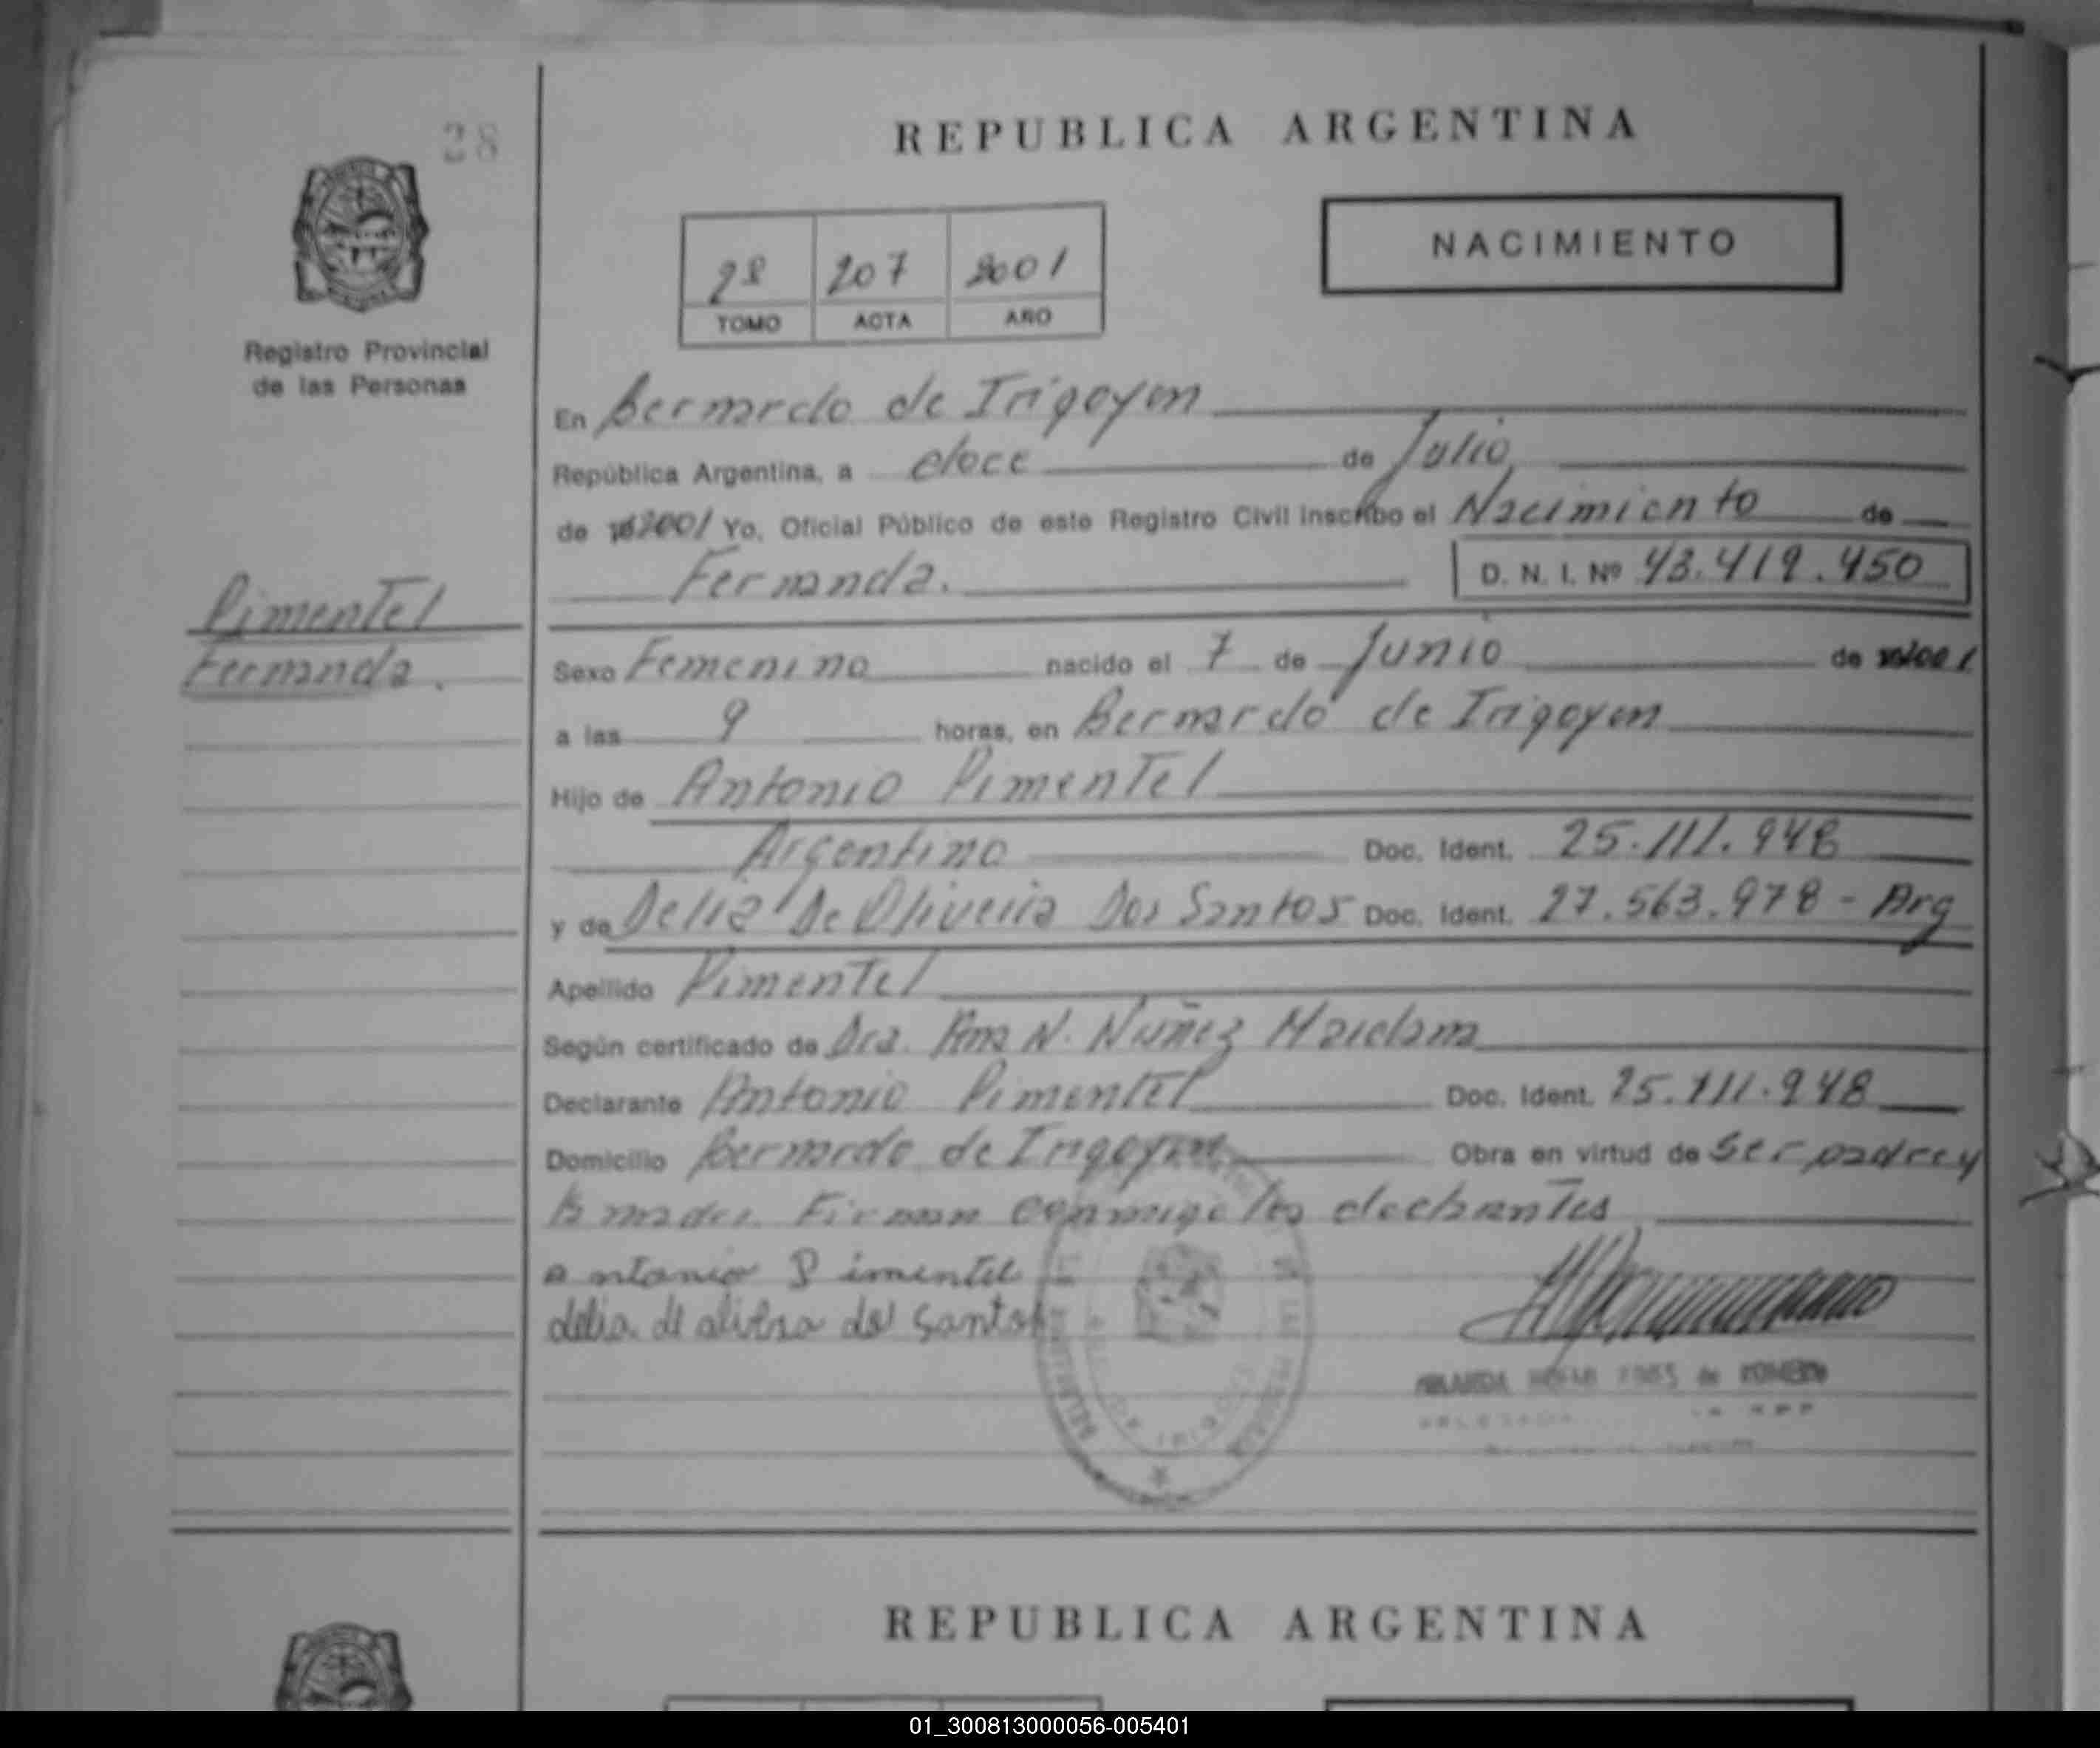 28
REPUBLICA ARGENTINA
NACIMIENTO
28 207 2001
TOMO ACTA AÑO
Registro Provincial
de las Personas
En Bernardo de Irigoyen
República Argentina, a doce de Julio
de 2001 Yo, Oficial Público de este Registro Civil inscribo el Nacimiento de
Fernanda. D. N. I. Nº 43.419.450
Pimentel
Fernanda.
Sexo Femenino nacido el 7 de Junio de 2001
a las 9 horas, en Bernardo de Irigoyen
Hijo de Antonio Pimentel
Argentino Doc. Ident. 25.111.948
y de Delia De Oliveira Dos Santos Doc. Ident. 27.563.978 - Arg
Apellido Pimentel
Según certificado de Dra. Ana N. Nuñez
Declarante Antonio Pimentel Doc. Ident. 25.111.948
Domicilio Bernardo de Irigoyen Obra en virtud de Ser padre y
la madre. Firman conmigo los declarantes
antonio Pimentel
delia de Santos
de ROMERO
REPUBLICA ARGENTINA
01_300813000056-005401